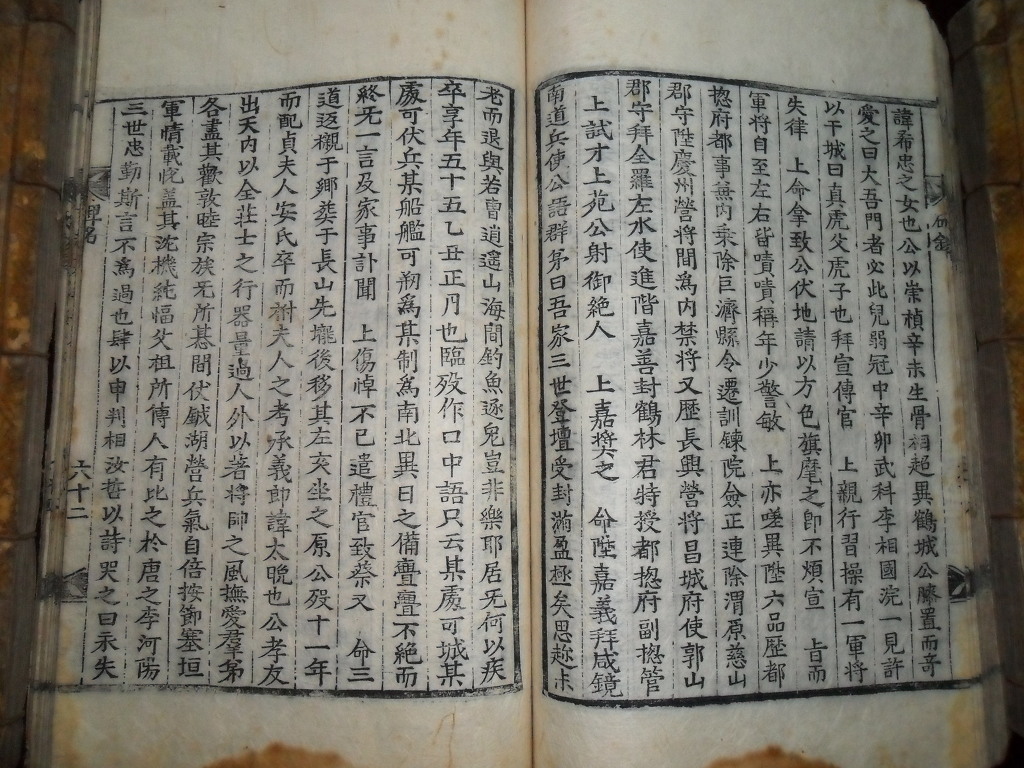 諱希忠之女也公以崇禎辛未生骨相超異鶴城公膝置而奇
愛之曰大吾門者必此兒弱冠中辛卯武科李相國浣一見許
以干城曰眞虎父虎子也拜宣傳官 上親行習操有一軍將
失律 上命拿致公伏地請以方色旗麾之卽不煩宣 旨而
軍將自至左右皆嘖嘖稱年少警敏 上亦嗟異陞六品歷都
摠府都事兼內乘除巨濟縣令遷訓鍊院僉正連除渭原慈山
郡守陞慶州營將間爲內禁將又歷長興營將昌城府使郭山
郡守拜全羅左水使進階嘉善封鶴林君特授都摠府副摠管
上試才上苑公射御絶人 上嘉奬之 命陞嘉義拜咸鏡
南道兵使公語群弟曰吾家三世登壇受封滿盈極矣思趂未
老而退與若曺逍遙山海間釣魚逐兔豈非樂耶居无何以疾
卒享年五十五乙丑正月也臨歿作口中語只云某處可城某
處可伏兵某船艦可刱爲某制爲南北異日之備亹亹不絶而
終无一言及家事訃聞 上傷悼不已遣禮官致祭又 命三
道返櫬于鄕葬于長山先壠後移其左亥坐之原公歿十一年
而配貞夫人安氏卒而祔夫人之考承義郎諱太晩也公孝友
出天內以全莊士之行器量過人外以著將帥之風撫愛羣弟
各盡其歡敦睦宗族无所甚間伏鉞湖營兵氣自倍按節塞垣
軍情載悅盖其沈機純愊父祖所傳人有比之於唐之李河陽
三世忠勤斯言不爲過也肆以申判相汝哲以詩哭之曰永失
六十二